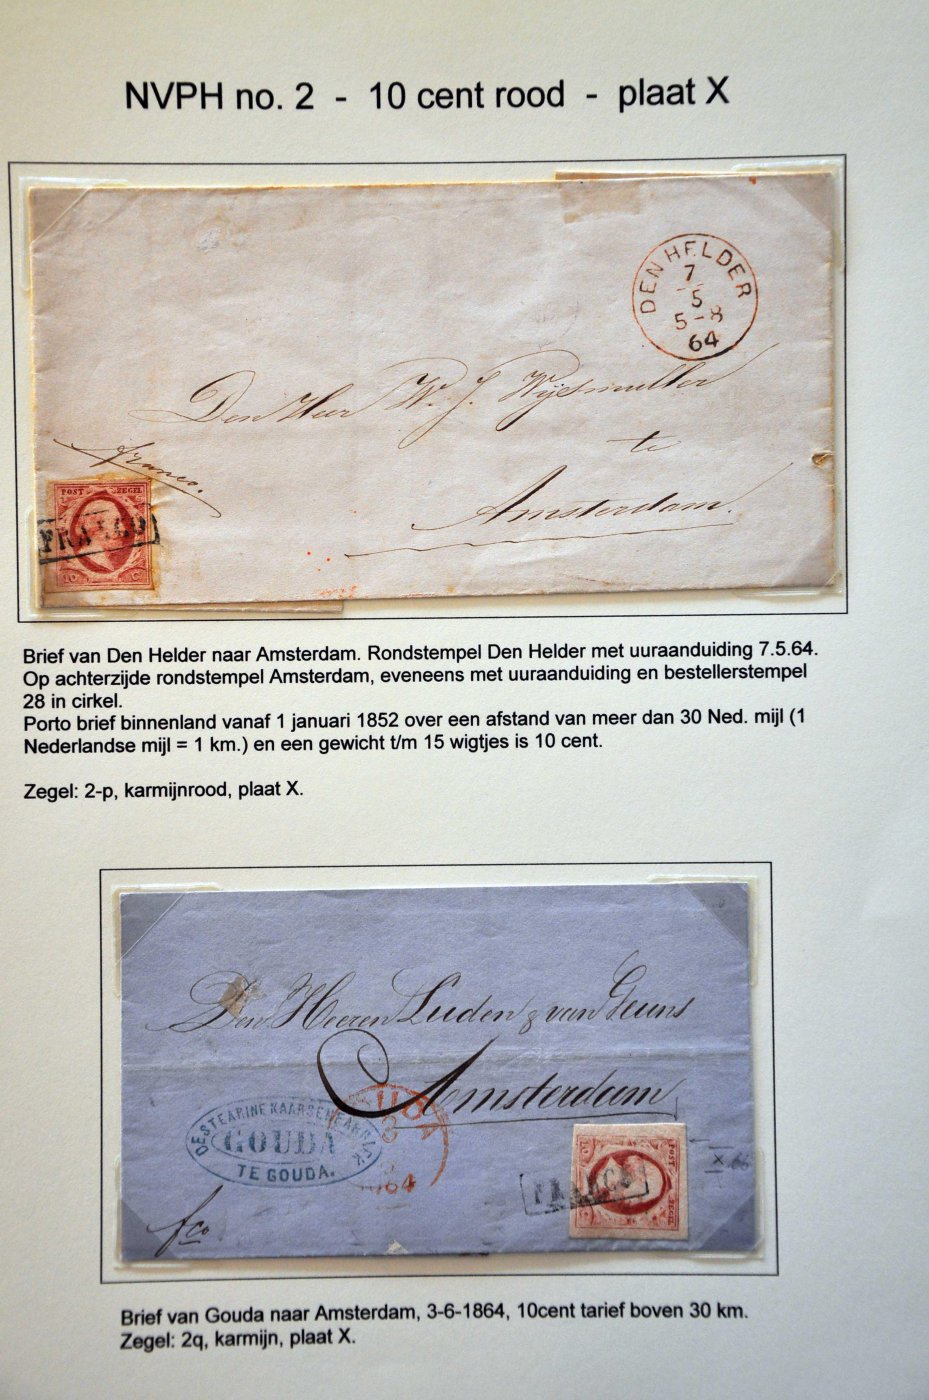 NVPH no. 2 - 10 cent rood - plaat X
DEN HELDER
7
5
5-8
64
Den Heer W. J. Wijsmuller
te
Amsterdam.
franco.
POST ZEGEL
FRANCO
10 C
Brief van Den Helder naar Amsterdam. Rondstempel Den Helder met uuraanduiding 7.5.64.
Op achterzijde rondstempel Amsterdam, eveneens met uuraanduiding en bestellerstempel
28 in cirkel.
Porto brief binnenland vanaf 1 januari 1852 over een afstand van meer dan 30 Ned. mijl (1
Nederlandse mijl = 1 km.) en een gewicht t/m 15 wigtjes is 10 cent.
Zegel: 2-p, karmijnrood, plaat X.
Den Heeren Luden & van Geuns
Amsterdam
DE STEARINE KAARSENFABRIEK
GOUDA
TE GOUDA.
1864
fco
FRANCO
10 C
POST ZEGEL
X
Brief van Gouda naar Amsterdam, 3-6-1864, 10cent tarief boven 30 km.
Zegel: 2q, karmijn, plaat X.